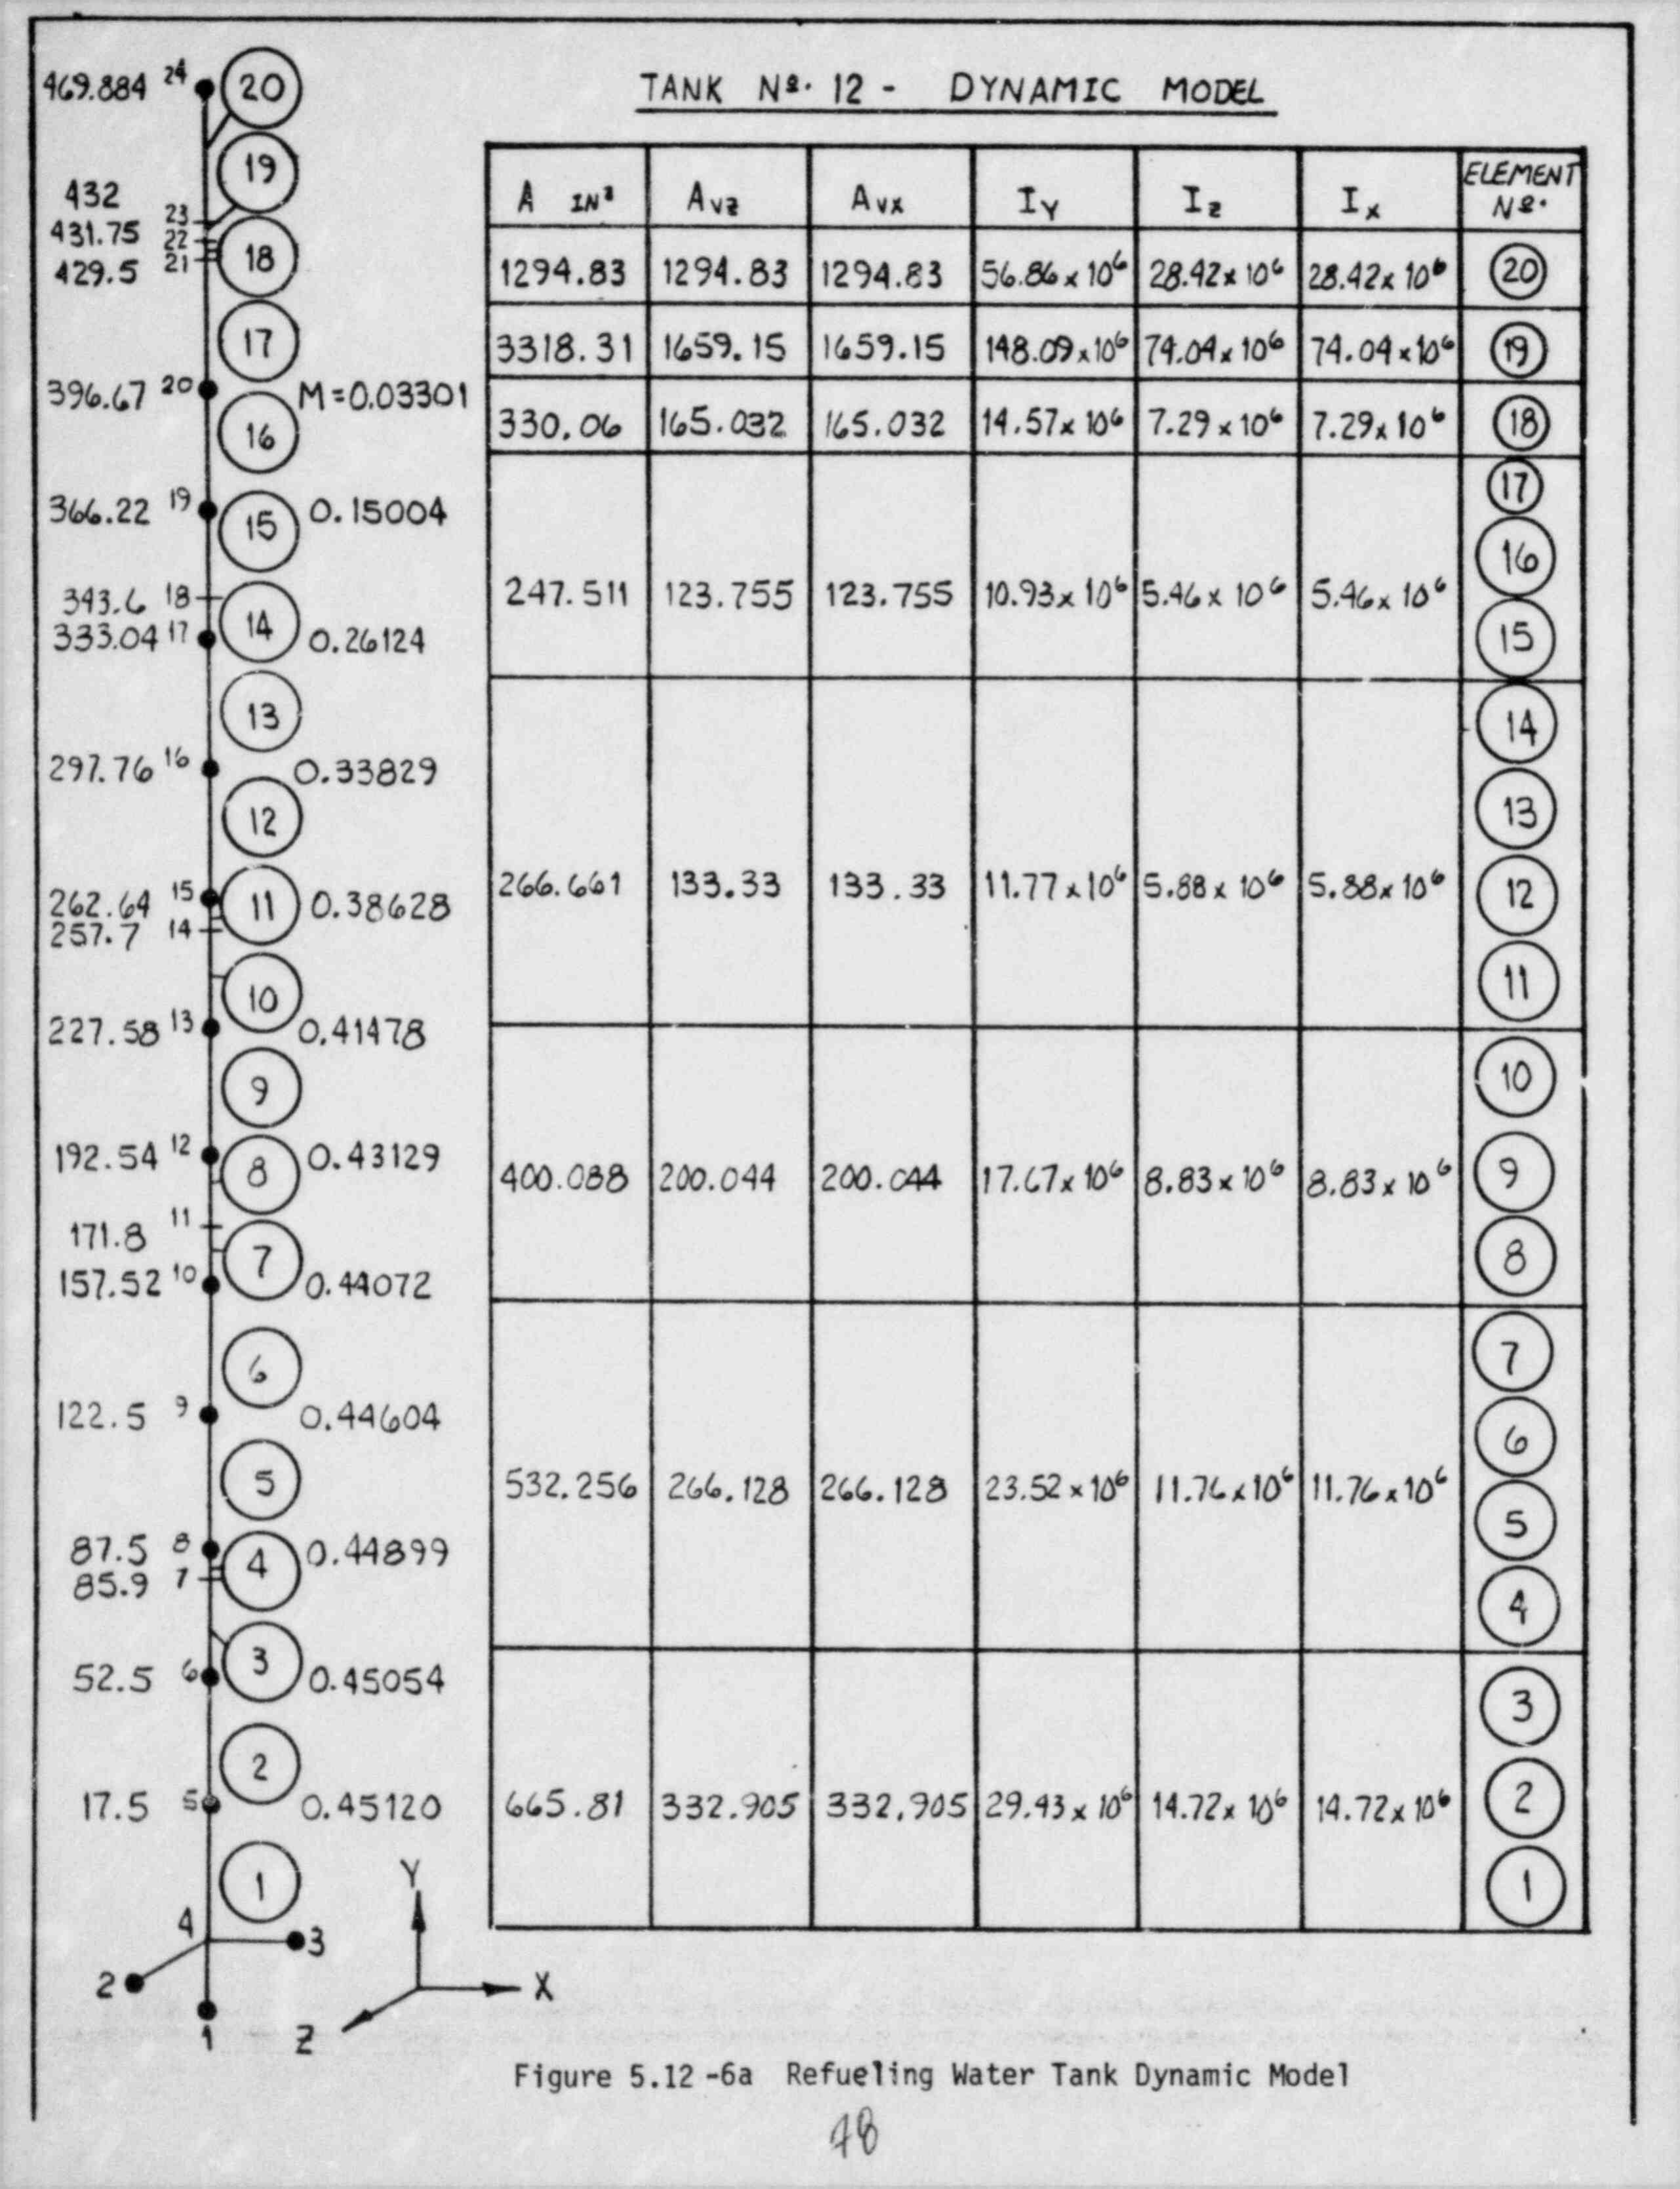 TANK Nº. 12 - DYNAMIC MODEL
469.884 24 20
19
432 23
431.75 22
429.5 21 18
17
396.67 20 M=0.03301
16
366.22 19 15 0.15004
343.6 18
333.04 17 14 0.26124
13
297.76 16 0.33829
12
262.64 15 11 0.38628
257.7 14
10
227.58 13 0.41478
9
192.54 12 8 0.43129
171.8 11
7
157.52 10 0.44072
6
122.5 9 0.44604
5
87.5 8 4 0.44899
85.9 7
3
52.5 6 0.45054
2
17.5 5 0.45120
1
4
3
2
1
Y
X
Z
A IN² Avz Avx IY Iz Ix ELEMENT Nº.
1294.83 1294.83 1294.83 56.86 x 10⁶ 28.42 x 10⁶ 28.42 x 10⁶ 20
3318.31 1659.15 1659.15 148.09 x 10⁶ 74.04 x 10⁶ 74.04 x 10⁶ 19
330.06 165.032 165.032 14.57 x 10⁶ 7.29 x 10⁶ 7.29 x 10⁶ 18
17
16
247.511 123.755 123.755 10.93 x 10⁶ 5.46 x 10⁶ 5.46 x 10⁶
15
14
13
266.661 133.33 133.33 11.77 x 10⁶ 5.88 x 10⁶ 5.88 x 10⁶ 12
11
10
400.088 200.044 200.044 17.67 x 10⁶ 8.83 x 10⁶ 8.83 x 10⁶ 9
8
7
6
532.256 266.128 266.128 23.52 x 10⁶ 11.76 x 10⁶ 11.76 x 10⁶
5
4
3
665.81 332.905 332.905 29.43 x 10⁶ 14.72 x 10⁶ 14.72 x 10⁶ 2
1
Figure 5.12-6a Refueling Water Tank Dynamic Model
48